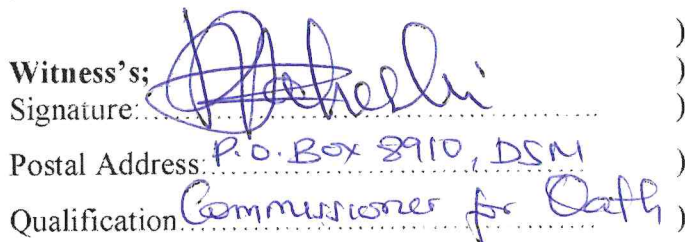 )
Witness's; )
Signature: )
Postal Address: P.O. Box 8910, DSM )
Qualification Commissioner for Oath )